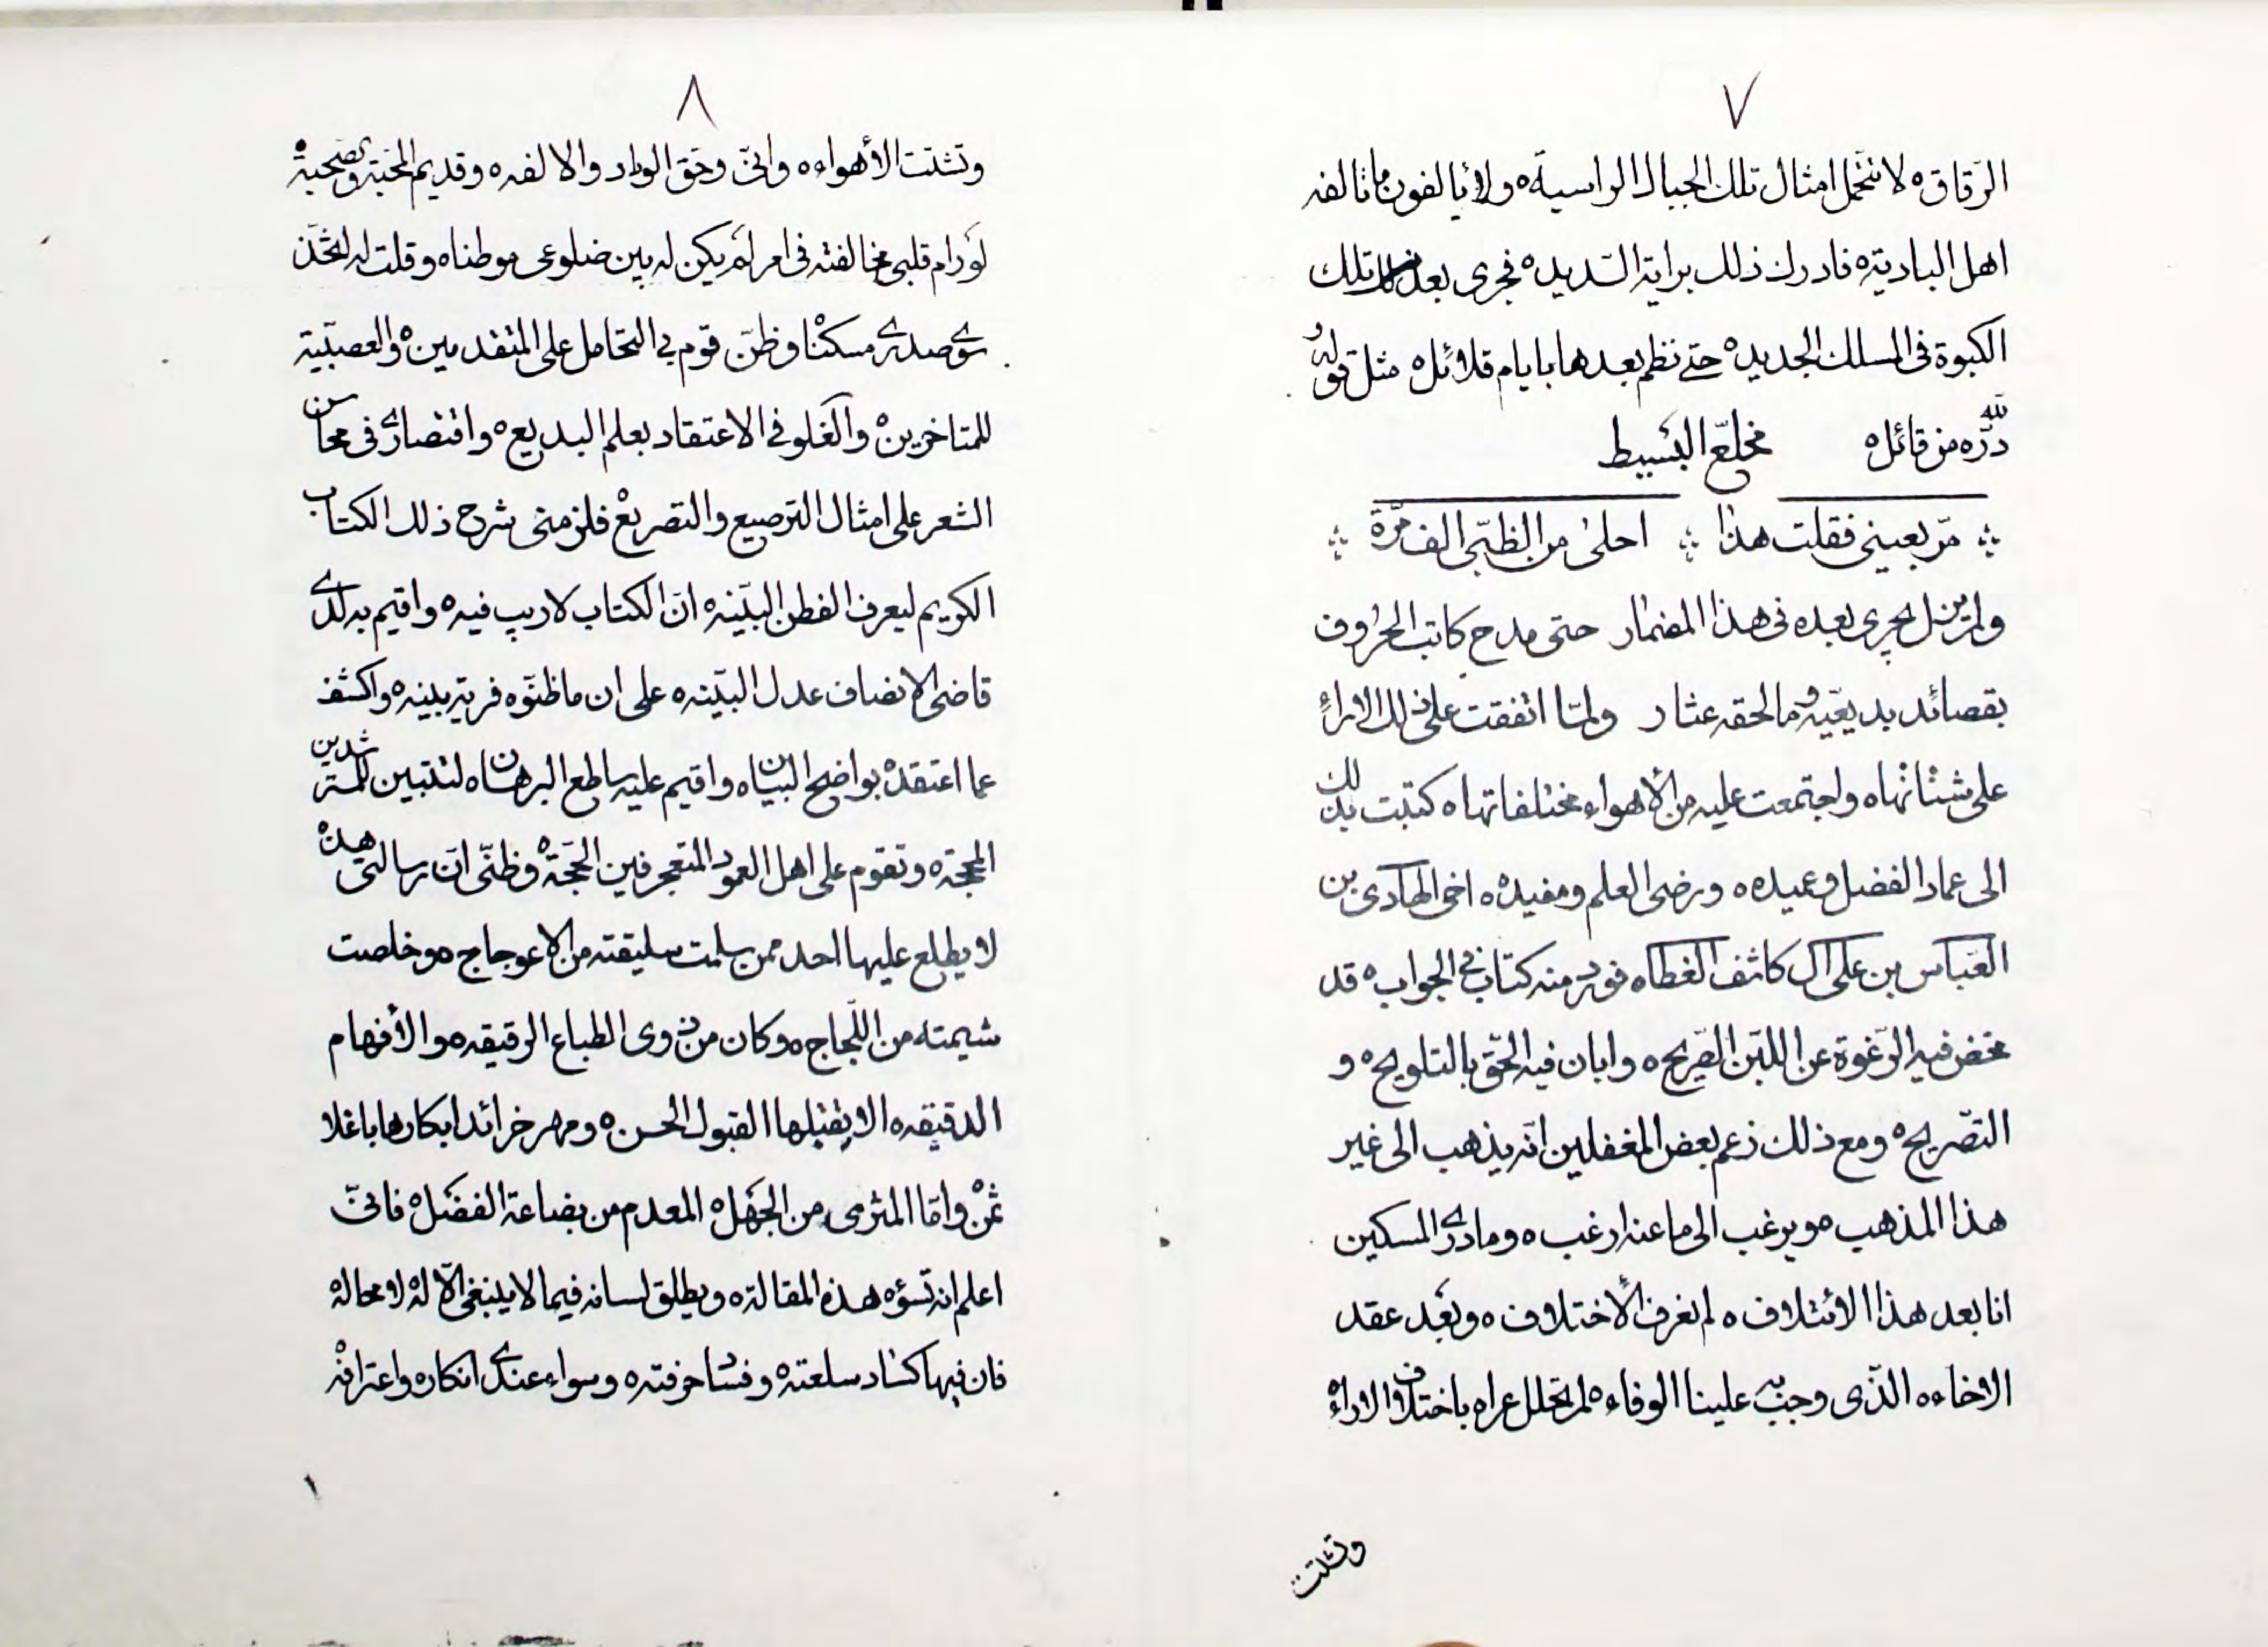 ٧
الرقاق ه لا تتحمل امثال تلك الجبال الراسية ه ولا يألفون ما تألفه
اهل البادية ه فادرك ذلك برايه السديد ه فجرى بعد تلك
الكبوة فى المسلك الجديد ه حتى نظم بعدها بايام قلائل ه مثل قوله و
لله درّه من قائل ه مخلّع البسيط
مرّ بعينى فقلت هذا احلىٰ من الظبى الف مرّة
ولم يزل يجرى بعده فى هذا المضمار حتى مدح كاتب الحروف
بقصائد بديعيّه وما لحقه عثار ولمّا اتفقت على ذلك الاراء
على شتاتها ه واجتمعت عليه من الأهواء مختلفاتها ه كتبت بذلك
الى عماد الفضل وعميده ه ورضى العلم ومفيده ه اخى الهادى بن
العبّاس بن على آل كاشف الغطا ه فورد منه كتاب فى الجواب ه قد
مخض فيه الرّغوة عن اللبن الصّريح ه وابان فيه الحقّ بالتلويح ه و
التصّريح ه ومع ذلك زعم بعض المغفلين انّه يذهب الى غير
هذا المذهب ه ويرغب الى ما عنه ارغب ه وما درى المسكين
انا بعد هذا الائتلاف ه لم نعرف الأختلاف ه وبعد عقد
الاخاء ه الذّى وجب به علينا الوفاء ه لم تحلل عراه باختلاف الاراء
وتشتت
٨
وتشتت الأهواء ه وانّى وحق الوداد والالفه ه وقديم المحبّة والصحبة
لو رام قلبى مخالفته فى امر لم يكن له بين ضلوعى موطنا ه وقلت له اتّخذ
سوى صدرى مسكنا وظنّ قوم بى التحامل على المتقدمين ه والعصبيّة
للمتاخرين ه والغلو فى الاعتقاد بعلم البديع ه واقتصارى فى محاسن
الشعر على امثال الترصيع والتصريع فلزمنى شرح ذلك الكتاب
الكريم ليعرف الفطن البيّنه انّ الكتاب لا ريب فيه ه واقيم به لدى
قاضى الانصاف عدل البيّنه ه على ان ما ظنوّه فرية بينه ه واكشف
عما اعتقده بواضح البيان ه واقيم عليه ساطع البرهان ه لتتبين للمسترشدين
المحجّة ه وتقوم على اهل العمود المتعجرفين الحجّة ه وظنّى انّ رسالتى هذه
لا يطلع عليها احد ممن سلمت سليقته من الاعوجاج ه وخلصت
شيمته من اللّجاج ه وكان من ذوى الطباع الرقيقه ه والأفهام
الدقيقه ه الا يقبلها القبول الحسن ه ومهر خرائد ابكارها باغلا
ثمن ه وامّا المثرى من الجهل ه المعدم من بضاعة الفضل ه فانّى
اعلم انه تسؤه هذه المقالة ه ويطلق لسانه فيما لا ينبغى الّا له لا محاله
فان فيها كساد سلعته ه وفساد حرفته ه وسواء عندى انكاره واعترافه